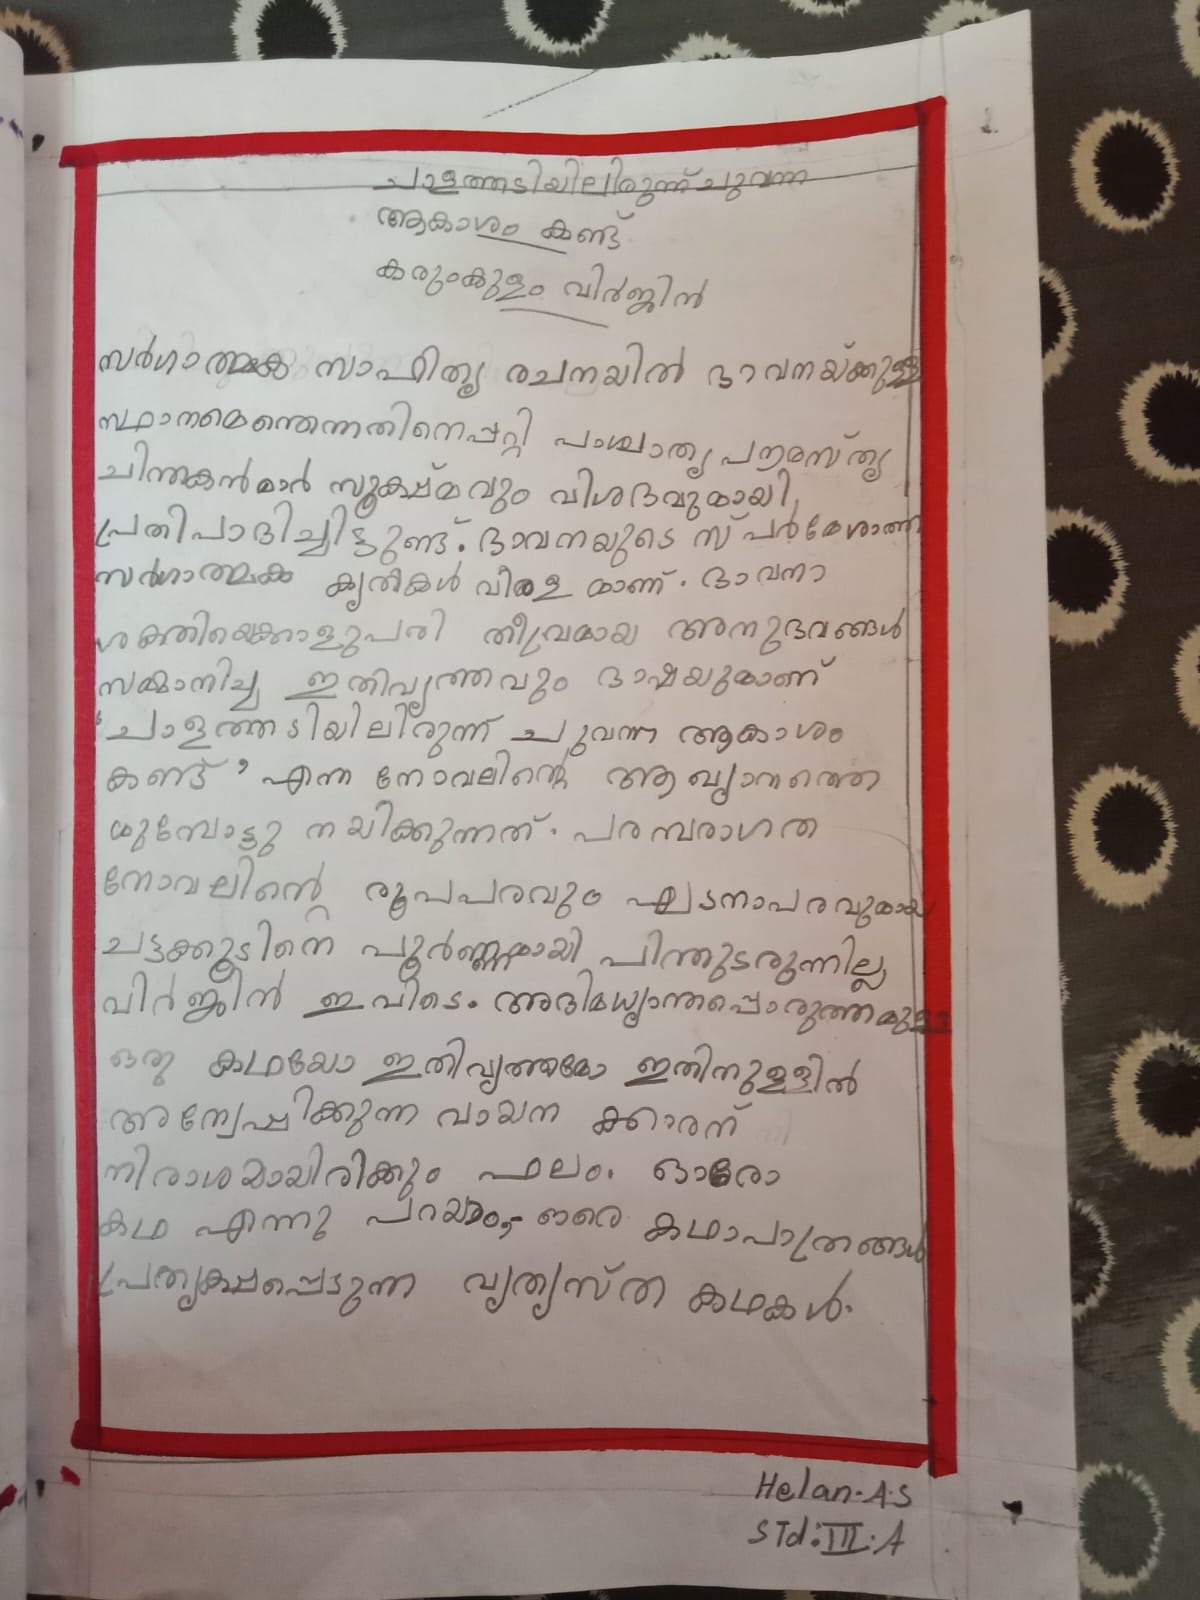 ചാളത്തടിയിലിരുന്ന് ചുവന്ന
ആകാശം കണ്ട്
കരുംകുളം വിർജിൻ
സർഗാത്മക സാഹിത്യ രചനയിൽ ഭാവനയ്ക്കുള്ള
സ്ഥാനമെന്തെന്നതിനെപ്പറ്റി പാശ്ചാത്യ പൗരസ്ത്യ
ചിന്തകൻമാർ സൂക്ഷ്മവും വിശദവുമായി
പ്രതിപാദിച്ചിട്ടുണ്ട്. ഭാവനയുടെ സ്പർശമേശാത്ത
സർഗാത്മക കൃതികൾ വിരള മാണ്. ഭാവനാ
ശക്തിയെക്കാളുപരി തീവ്രമായ അനുഭവങ്ങൾ
സമ്മാനിച്ച ഇതിവൃത്തവും ഭാഷയുമാണ്
'ചാളത്തടിയിലിരുന്ന് ചുവന്ന ആകാശം
കണ്ട്' എന്ന നോവലിന്റെ ആഖ്യാനത്തെ
മുമ്പോട്ടു നയിക്കുന്നത്. പരമ്പരാഗത
നോവലിന്റെ രൂപപരവും ഘടനാപരവുമായ
ചട്ടക്കൂടിനെ പൂർണ്ണമായി പിന്തുടരുന്നില്ല
വിർജിൻ ഇവിടെ. അദിമധ്യാന്തപ്പൊരുത്തമുള്ള
ഒരു കഥയോ ഇതിവൃത്തമോ ഇതിനുള്ളിൽ
അന്വേഷിക്കുന്ന വായന ക്കാരന്
നിരാശയായിരിക്കും ഫലം. ഓരോ
കഥ എന്നു പറയാം,- ഒരേ കഥാപാത്രങ്ങൾ
പ്രത്യക്ഷപ്പെടുന്ന വ്യത്യസ്ത കഥകൾ.
Helan.A.S
STd:III.A